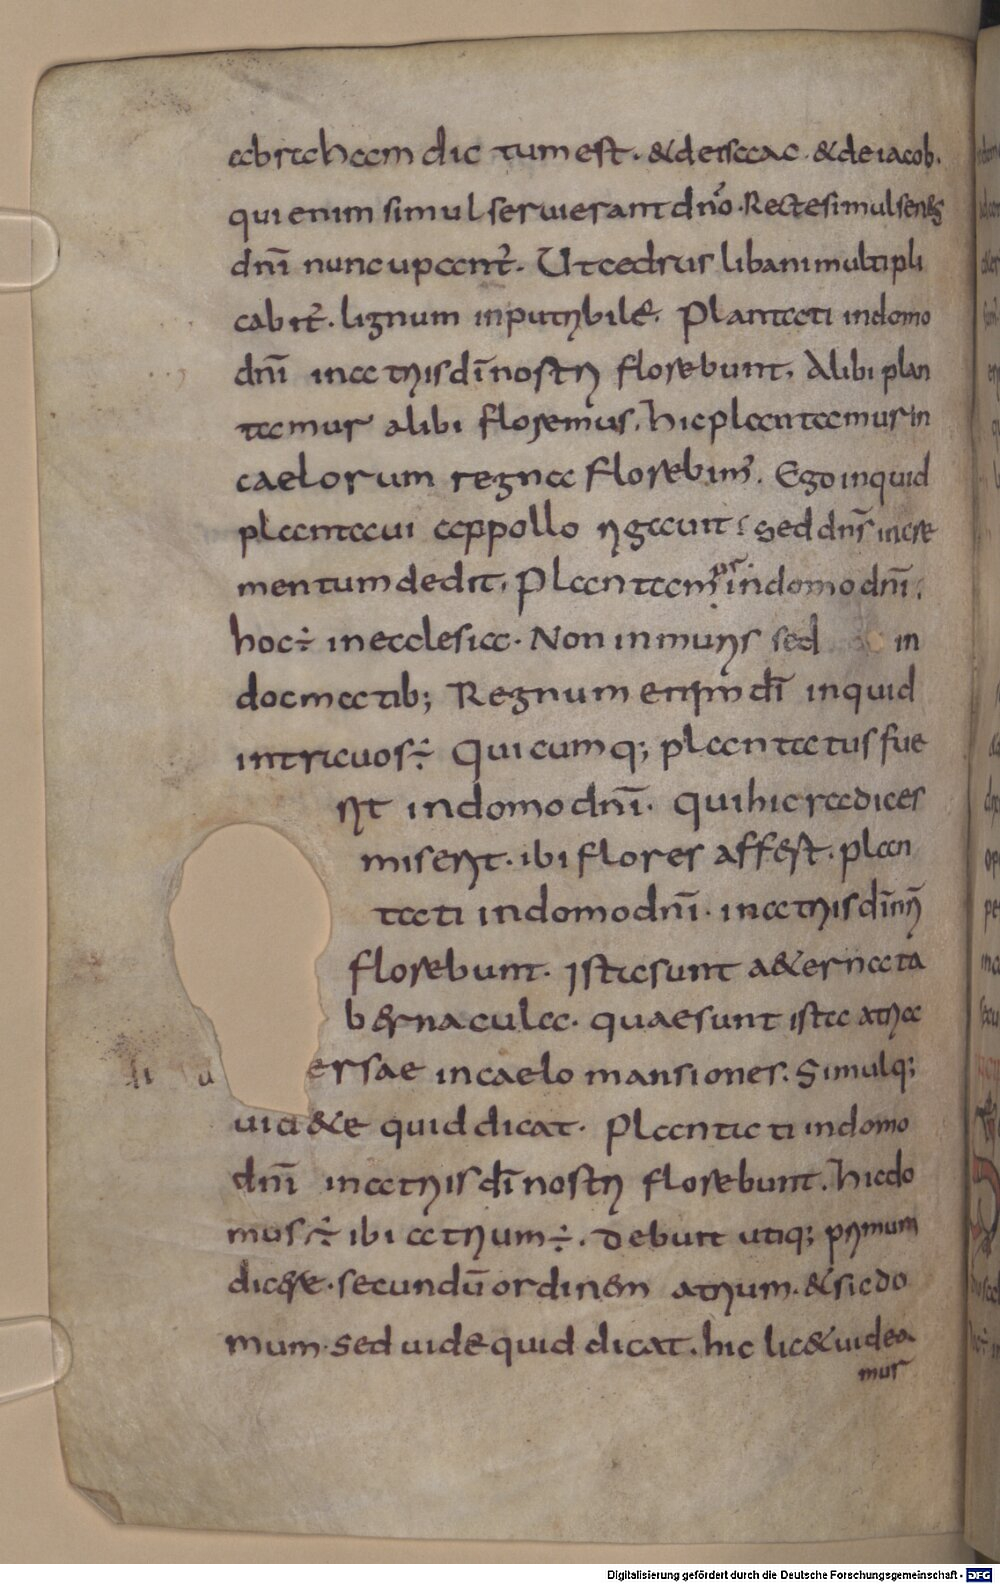 abraham dictum est. & de isaac. & de iacob.
qui enim simul seruierant dn̄o. Recte simul serui
dn̄i nuncupant̄. Ut cedrus libani multipli
cabit̄. lignum inputribile. Plantati in domo
dn̄i in atriis dī nostri florebunt. Alibi plan
tamur alibi floremus. hic plantamur in
caelorum regna florebim'. Ego inquid
plantaui appollo rigauit; sed dn̄s incre
mentum dedit. Plantam in domo dn̄i.
hoc ÷ in ecclesia. Non in muris sed in
docmatib; Regnum enim dī inquid
intra uos ÷. Quicumq; plantatus fue
rit in domo dn̄i. qui hic radices
miserit. ibi flores affert. plan
tati in domo dn̄i. in atriis dī nr̄i
florebunt. Ista sunt a&erna ta
b&rnacula. quae sunt ista atria
ersae in caelo mansiones. Simulq;
uid&e quid dicat. Plantati in domo
dn̄i in atriis dī nostri florebunt. hic do
mus ÷ ibi atrium ÷. debuit utiq; primum
dicere. secundū ordinem atrium. & sic do
mum. sed uide quid dicat. hic lic& uidea
mur
Digitalisierung gefördert durch die Deutsche Forschungsgemeinschaft - DFG